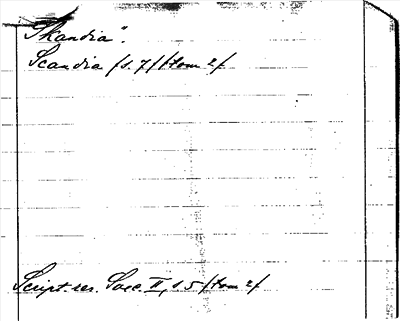 "Skandia".
Scandia /s. 7/ /tom 2/
Script. rer. Svec. II, s 5 /tom 2/